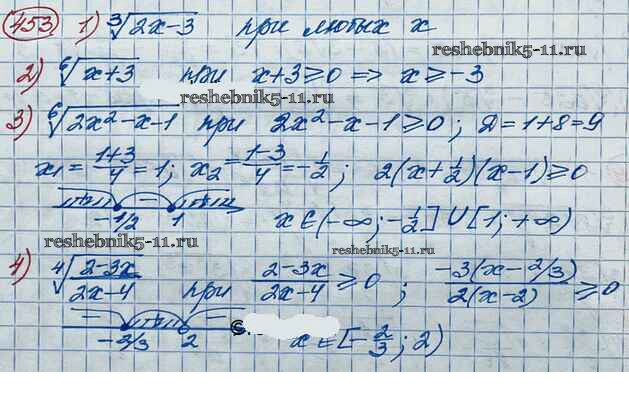 453 1) ∛(2x-3) при любых x
reshebnik5-11.ru
2) ⁶√(x+3) при x+3≥0 => x≥-3
reshebnik5-11.ru
3) ⁶√(2x²-x-1) при 2x²-x-1≥0; Д=1+8=9
x₁=(1+3)/4=1; x₂=(1-3)/4=-1/2; 2(x+1/2)(x-1)≥0
-1/2 1 x∈(-∞;-1/2]∪[1;+∞)
reshebnik5-11.ru reshebnik5-11.ru
4) ⁴√((2-3x)/(2x-4)) при (2-3x)/(2x-4)≥0; (-3(x-2/3))/(2(x-2))≥0
-2/3 2 x∈[-2/3;2)